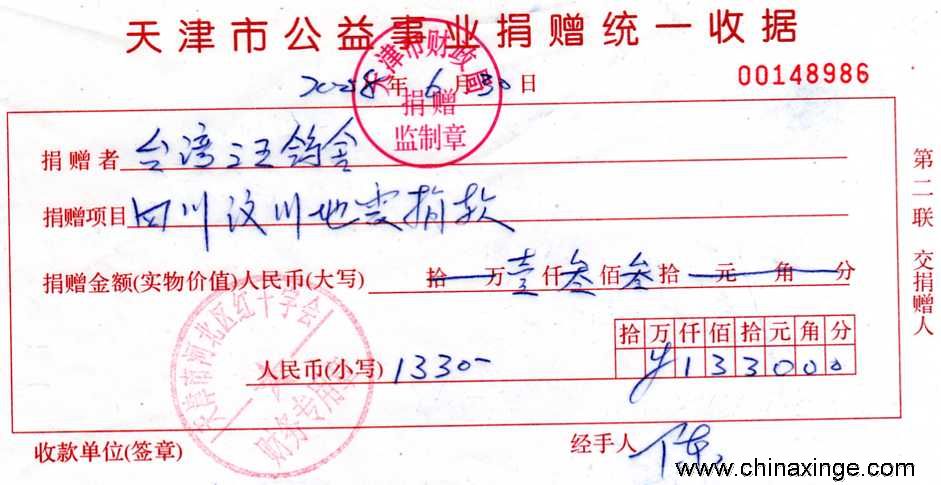 天津市公益事业捐赠统一收据
天津市财政局
捐赠
监制章
2008年6月30日
00148986
捐赠者 台湾汪鸽舍
捐赠项目 四川汶川地震捐款
捐赠金额(实物价值)人民币(大写) 拾 万壹仟叁佰叁拾 元 角 分
拾万仟佰拾元角分
人民币(小写) 1330- ¥133000
天津市河北区红十字会
财务专用章
收款单位(签章)
经手人
第二联 交捐赠人
www.chinaxinge.com